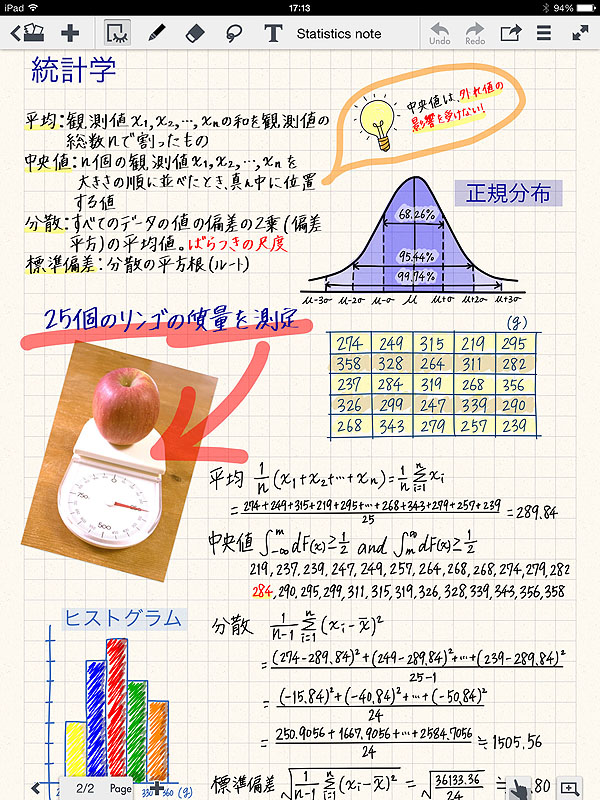 iPad 17:13 94%
Statistics note
Undo Redo
統計学
中央値は、外れ値の
影響を受けない!
平均:観測値x₁,x₂,…,xₙの和を観測値の
総数nで割ったもの
中央値:n個の観測値x₁,x₂,…,xₙを
大きさの順に並べたとき、真ん中に位置
する値
分散:すべてのデータの値の偏差の2乗(偏差
平方)の平均値。ばらつきの尺度
標準偏差:分散の平方根(ルート)
正規分布
68.26%
95.44%
99.74%
μ-3σ μ-2σ μ-σ μ μ+σ μ+2σ μ+3σ
25個のリンゴの質量を測定
(g)
274 249 315 219 295
358 328 264 311 282
237 284 319 268 356
326 299 247 339 290
268 343 279 257 239
0
750
500
平均 1/n (x₁+x₂+…+xₙ)=1/n Σ[i=1→n] xᵢ
= (274+249+315+219+295+…+268+343+279+257+239)/25 = 289.84
中央値 ∫[-∞→m] dF(x)≥1/2 and ∫[m→∞] dF(x)≥1/2
219, 237, 239, 247, 249, 257, 264, 268, 268, 274, 279, 282
284, 290, 295, 299, 311, 315, 319, 326, 328, 339, 343, 356, 358
分散 1/(n-1) Σ[i=1→n] (xᵢ-x̄)²
= ((274-289.84)²+(249-289.84)²+…+(239-289.84)²)/(25-1)
= ((-15.84)²+(-40.84)²+…+(-50.84)²)/24
= (250.9056+1667.9056+…+2584.7056)/24 ≒ 1505.56
標準偏差 √(1/(n-1) Σ[i=1→n] (xᵢ-x̄)²) = √(36133.36/24) 80
ヒストグラム
330 360 (g)
2/2 Page